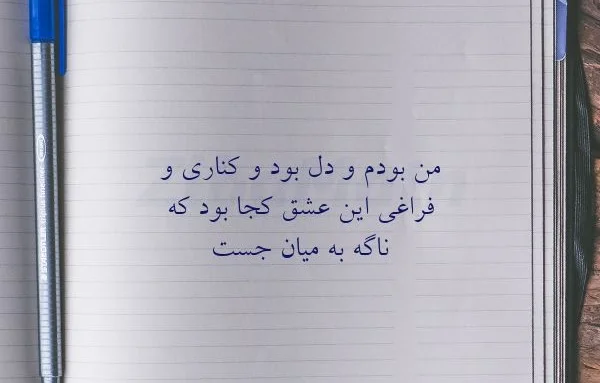 من بودم و دل بود و کناری و
فراغی این عشق کجا بود که
ناگه به میان جست